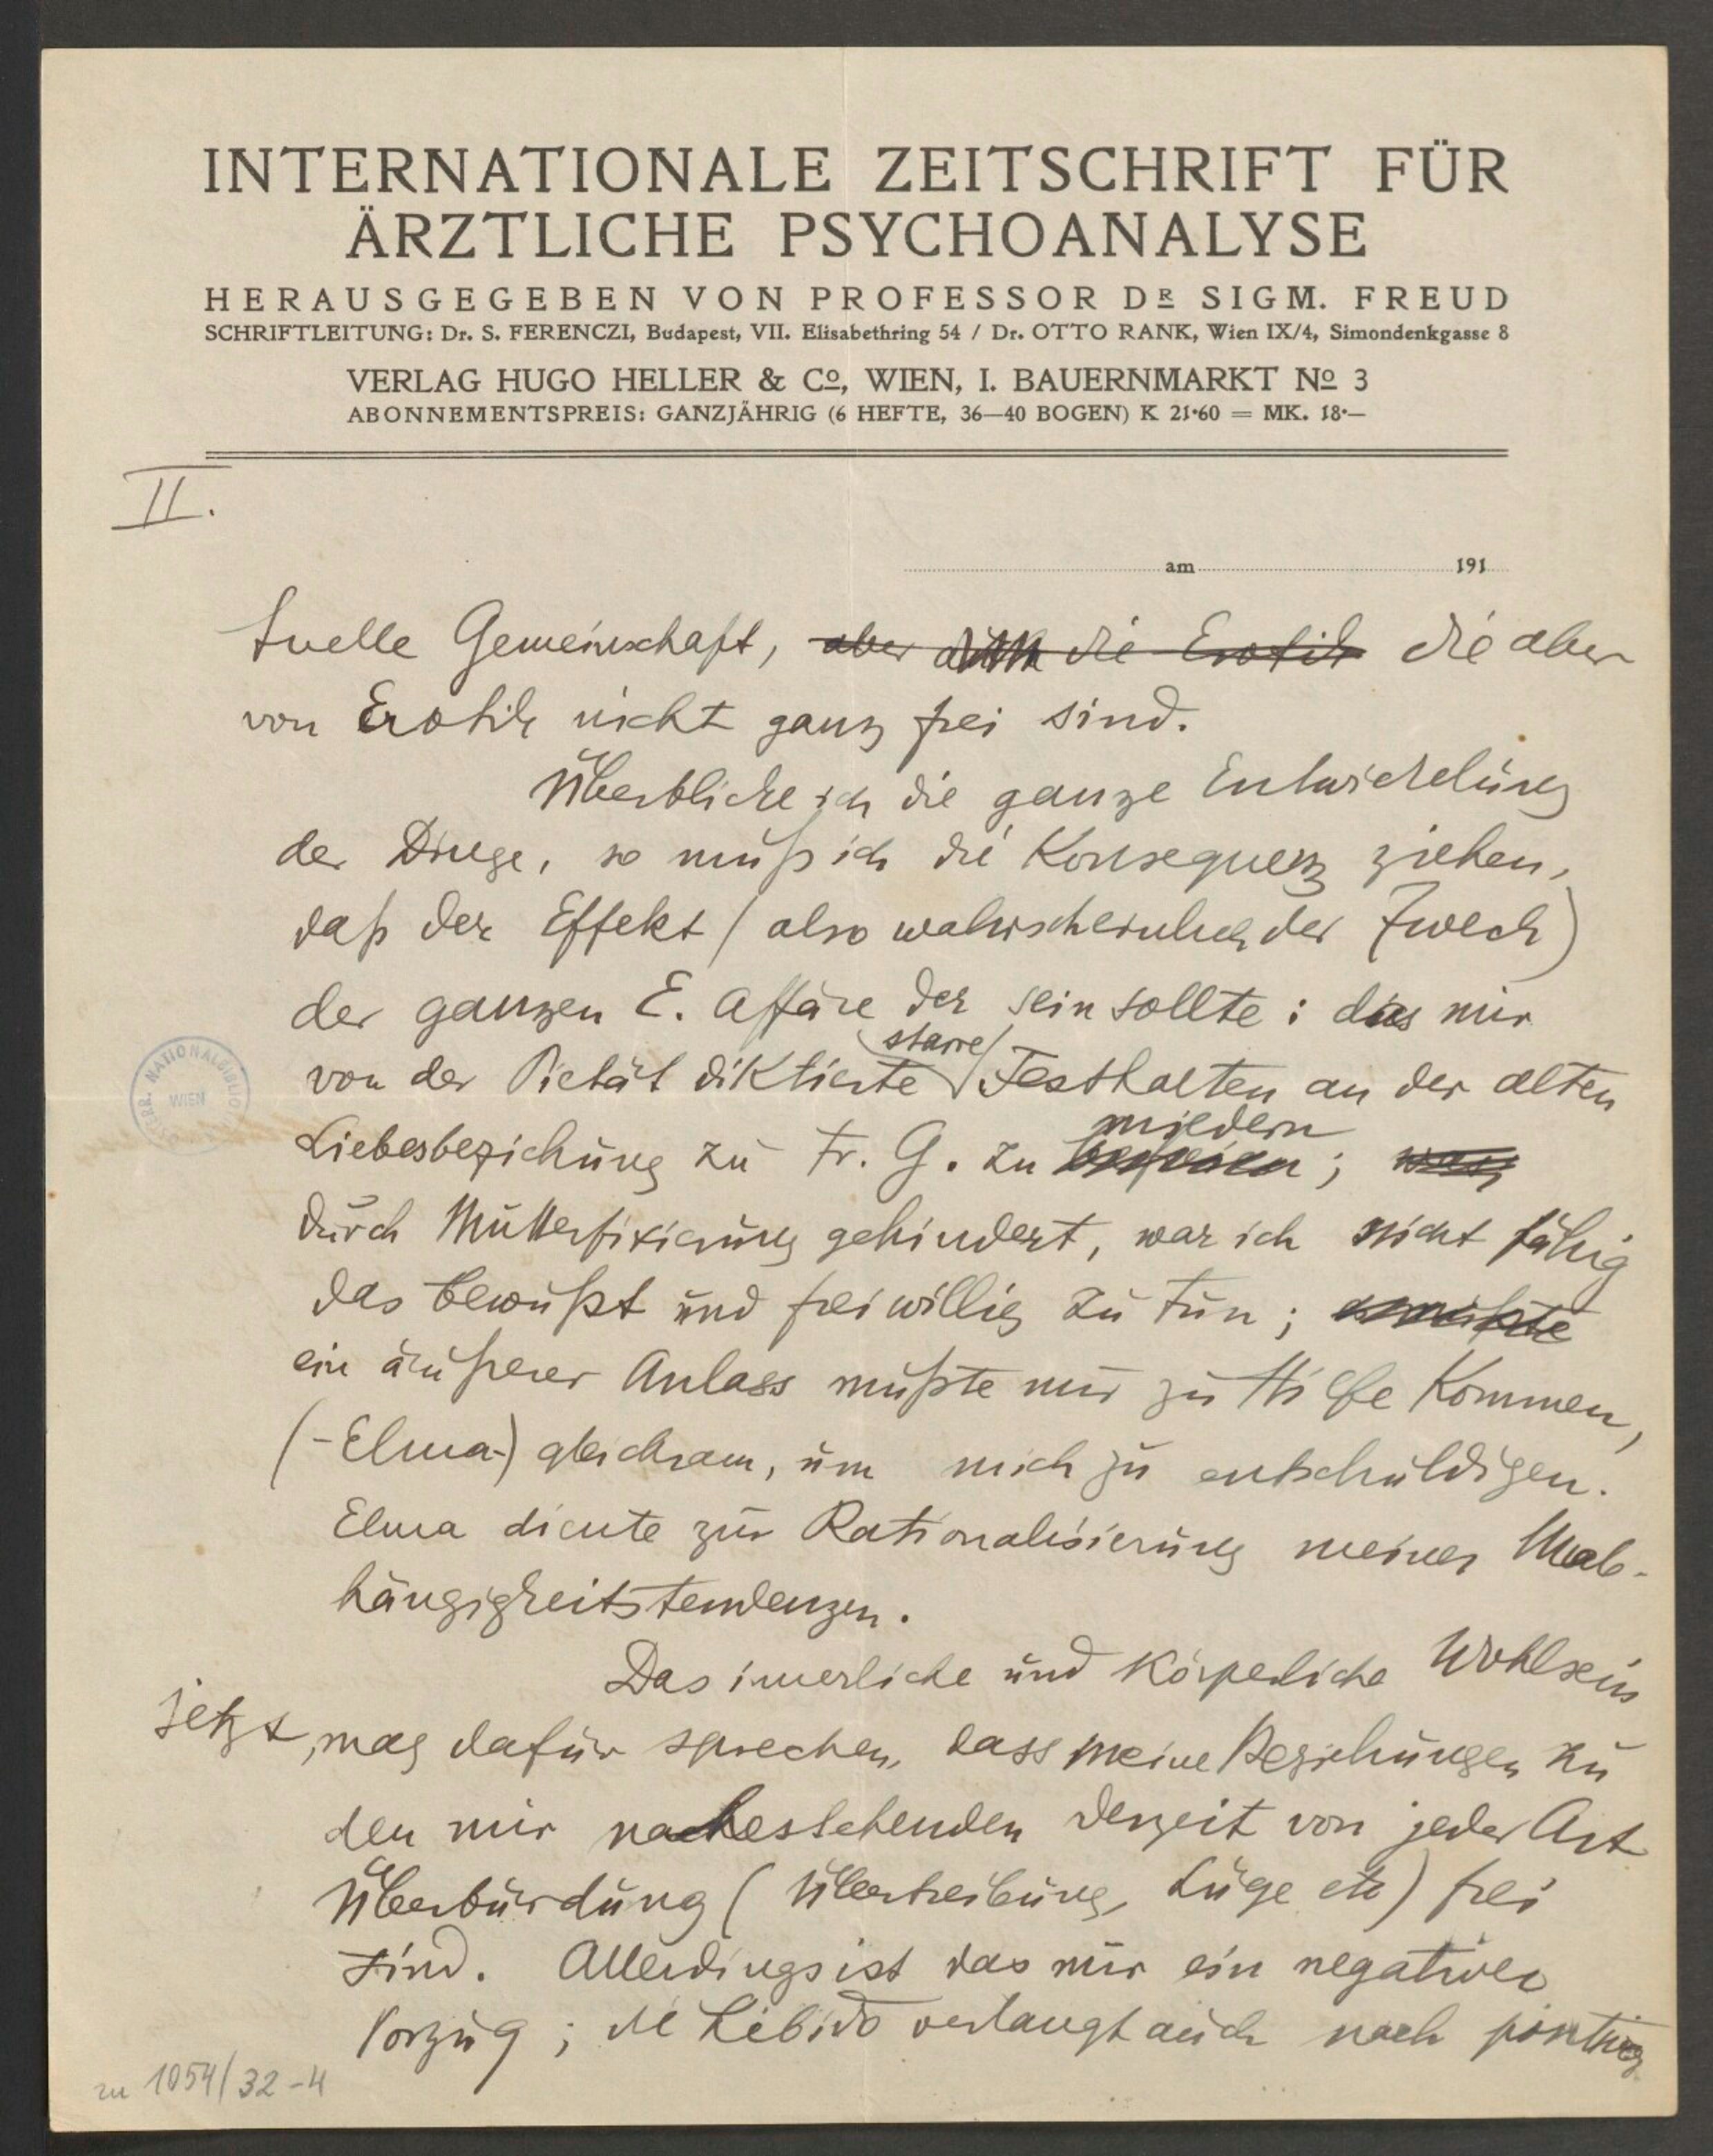 INTERNATIONALE ZEITSCHRIFT FÜR
ÄRZTLICHE PSYCHOANALYSE
HERAUSGEGEBEN VON PROFESSOR DR SIGM. FREUD
SCHRIFTLEITUNG: Dr. S. FERENCZI, Budapest, VII. Elisabethring 54 / Dr. OTTO RANK, Wien IX/4, Simondenkgasse 8
VERLAG HUGO HELLER & Co, WIEN, I. BAUERNMARKT No 3
ABONNEMENTSPREIS: GANZJÄHRIG (6 HEFTE, 36—40 BOGEN) K 21·60 = MK. 18·—
II.
am 191
tuelle Gemeinschaft, aber die Erotik die aber
von Erotik nicht ganz frei sind.
Überblicke ich die ganze Entwickelung
der Dinge, so muß ich die Konsequenz ziehen,
daß der Effekt (also wahrscheinlich der Zweck)
der ganzen E. Affäre der sein sollte: das mir
von der Pietät diktierte starre Festhalten an der alten
Liebesbeziehung zu Fr. G. zu mildern;
durch Mutterfixierung gehindert, war ich nicht fähig
das bewußt und freiwillig zu tun; musste
ein äußerer Anlass mußte mir zu Hilfe kommen,
(-Elma-) gleichsam, um mich zu entschuldigen.
Elma diente zur Rationalisierung meiner Unab-
hängigkeitstendenzen.
Das innerliche und körperliche Wohlsein
jetzt, mag dafür sprechen, dass meine Beziehungen zu
den mir nahestehenden derzeit von jeder Art
Überbürdung (Übertreibung, Lüge etc) frei
sind. Allerdings ist das nur ein negativer
Vorzug; die Libido verlangt auch nach positiver
zu 1054/32-4
ÖSTERR. NATIONALBIBLIOTHEK
WIEN